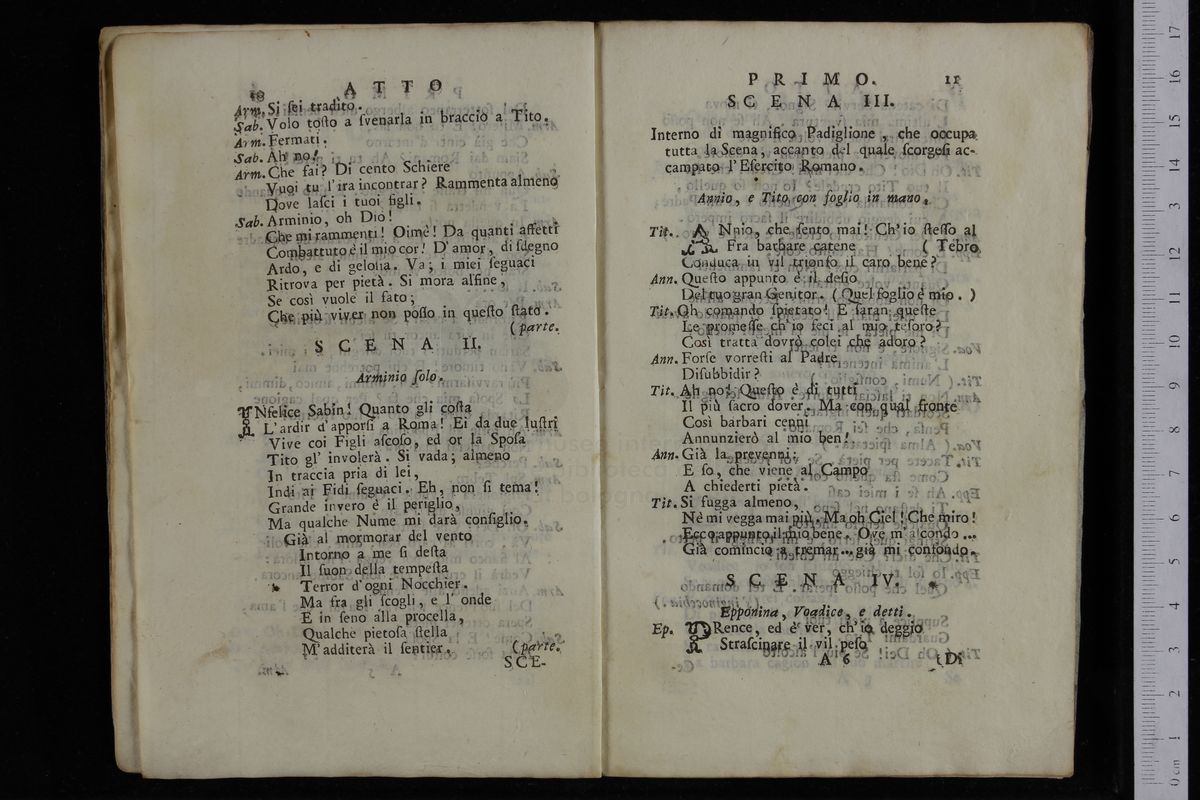 10
ATTO
Arm. Si ſei tradito.
Sab. Volo toſto a ſvenarla in braccio a Tito.
Arm. Fermati.
Sab. Ah no!
Arm. Che fai? Di cento Schiere
Vuoi tu l'ira incontrar? Rammenta almeno
Dove laſci i tuoi figli.
Sab. Arminio, oh Dio!
Che mi rammenti! Oimè! Da quanti affetti
Combattuto è il mio cor! D'amor, di ſdegno
Ardo, e di geloſia. Va; i miei ſeguaci
Ritrova per pietà. Si mora alfine,
Se così vuole il fato;
Che più viver non poſſo in queſto ſtato.
(parte.
SCENA II.
Arminio ſolo.
INfelice Sabin! Quanto gli coſta
L'ardir d'apporſi a Roma! Ei da due luſtri
Vive coi Figli aſcoſo, ed or la Spoſa
Tito gl' involerà. Si vada; almeno
In traccia pria di lei,
Indi ai Fidi ſeguaci. Eh, non ſi tema!
Grande invero è il periglio,
Ma qualche Nume mi darà conſiglio.
Già al mormorar del vento
Intorno a me ſi deſta
Il ſuon della tempeſta
Terror d'ogni Nocchier.
Ma fra gli ſcogli, e l' onde
E in ſeno alla procella,
Qualche pietoſa ſtella
M'additerà il ſentier.
(parte.
SCE-
PRIMO.
11
SCENA III.
Interno di magnifico Padiglione, che occupa
tutta la Scena, accanto del quale ſcorgeſi ac-
campato l'Eſercito Romano.
Annio, e Tito con foglio in mano.
Tit. ANnio, che ſento mai! Ch'io ſteſſo al
Fra barbare catene (Tebro
Conduca in vil trionfo il caro bene?
Ann. Queſto appunto è il deſio
Del tuo gran Genitor. (Quel foglio è mio.)
Tit. Oh comando ſpietato! E ſaran queſte
Le promeſſe ch'io feci al mio teſoro?
Così tratta dovrò colei che adoro?
Ann. Forſe vorreſti al Padre
Diſubbidir?
Tit. Ah no! Queſto è di tutti
Il più ſacro dover. Ma con qual fronte
Così barbari cenni
Annunzierò al mio ben!
Ann. Già la prevenni;
E ſo, che viene al Campo
A chiederti pietà.
Tit. Si fugga almeno,
Nè mi vegga mai più. Ma oh Ciel! Che miro!
Ecco appunto il mio bene. Ove m'aſcondo ...
Già comincio a tremar... già mi confondo.
SCENA IV.
Epponina, Voadice, e detti.
Ep. PRence, ed è ver, ch'io deggio
Straſcinare il vil peſo
A 6
(Di
0 cm 1 2 3 4 5 6 7 8 9 10 11 12 13 14 15 16 17